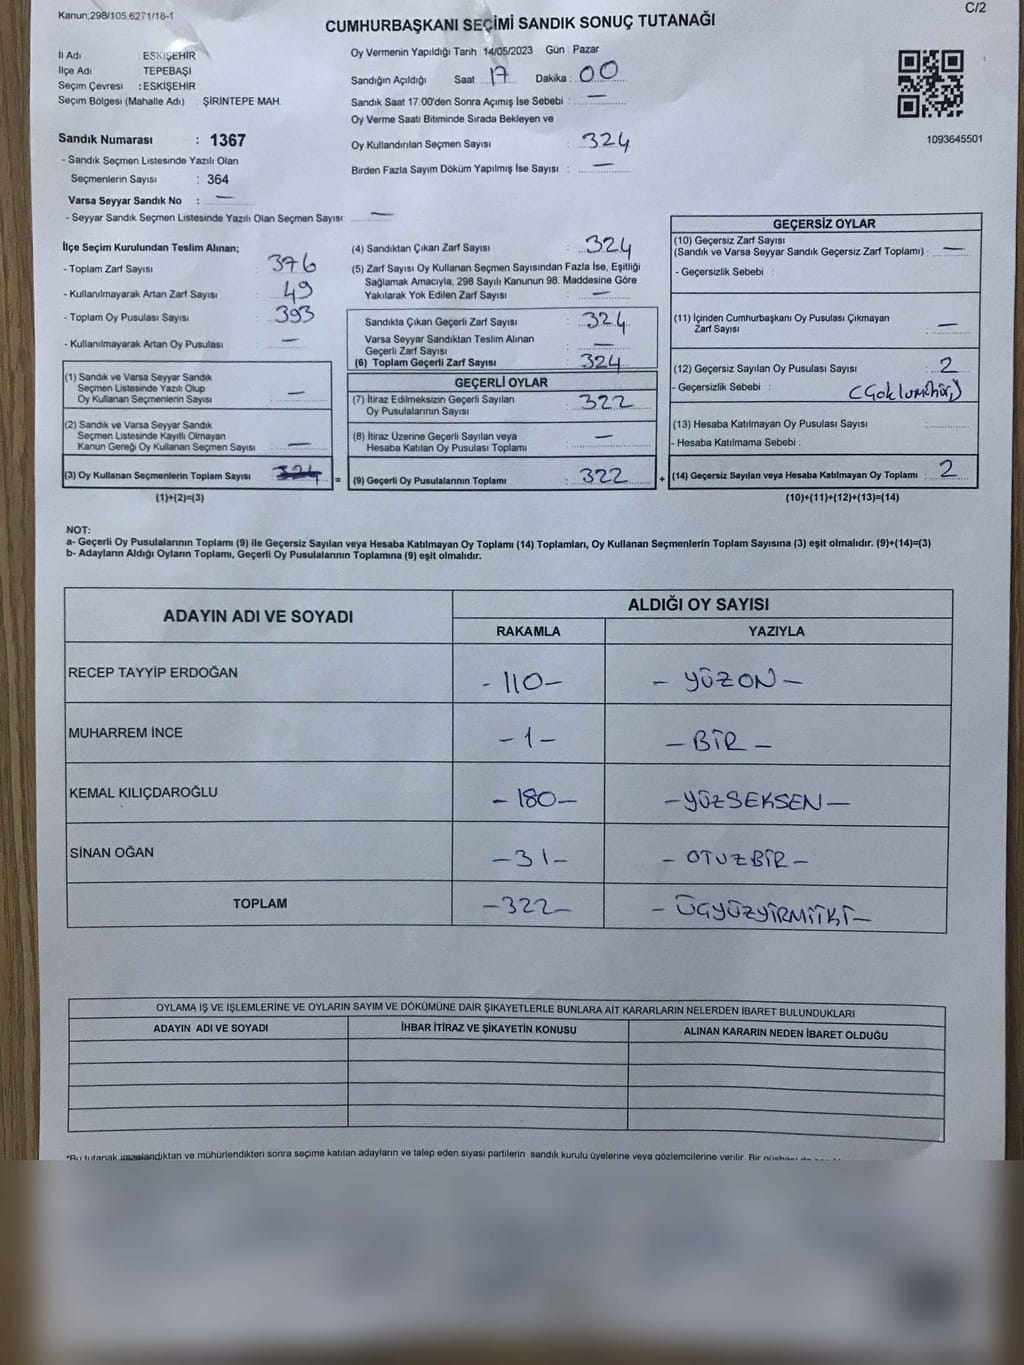 Kanun;298/105,6271/18-1
C/2
CUMHURBAŞKANI SEÇİMİ SANDIK SONUÇ TUTANAĞI
İl Adı : ESKİŞEHİR
İlçe Adı : TEPEBAŞI
Seçim Çevresi : ESKİŞEHİR
Seçim Bölgesi (Mahalle Adı) : ŞİRİNTEPE MAH.
Sandık Numarası : 1367
- Sandık Seçmen Listesinde Yazılı Olan
Seçmenlerin Sayısı : 364
Varsa Seyyar Sandık No : —
- Seyyar Sandık Seçmen Listesinde Yazılı Olan Seçmen Sayısı: —
Oy Vermenin Yapıldığı Tarih : 14/05/2023 Gün : Pazar
Sandığın Açıldığı Saat : 17 Dakika : 00
Sandık Saat 17:00'den Sonra Açımış İse Sebebi : —
Oy Verme Saati Bitiminde Sırada Bekleyen ve
Oy Kullandırılan Seçmen Sayısı : 324
Birden Fazla Sayım Döküm Yapılmış İse Sayısı : —
1093645501
İlçe Seçim Kurulundan Teslim Alınan;
- Toplam Zarf Sayısı : 376
- Kullanılmayarak Artan Zarf Sayısı : 49
- Toplam Oy Pusulası Sayısı : 393
- Kullanılmayarak Artan Oy Pusulası : —
(1) Sandık ve Varsa Seyyar Sandık
Seçmen Listesinde Yazılı Olup
Oy Kullanan Seçmenlerin Sayısı : —
(2) Sandık ve Varsa Seyyar Sandık
Seçmen Listesinde Kayıtlı Olmayan
Kanun Gereği Oy Kullanan Seçmen Sayısı : —
(3) Oy Kullanan Seçmenlerin Toplam Sayısı : 324 =
(1)+(2)=(3)
(4) Sandıktan Çıkan Zarf Sayısı : 324
(5) Zarf Sayısı Oy Kullanan Seçmen Sayısından Fazla İse, Eşitliği
Sağlamak Amacıyla, 298 Sayılı Kanunun 98. Maddesine Göre
Yakılarak Yok Edilen Zarf Sayısı : —
Sandıkta Çıkan Geçerli Zarf Sayısı : 324
Varsa Seyyar Sandıktan Teslim Alınan
Geçerli Zarf Sayısı : —
(6) Toplam Geçerli Zarf Sayısı : 324
GEÇERLİ OYLAR
(7) İtiraz Edilmeksizin Geçerli Sayılan
Oy Pusulalarının Sayısı : 322
(8) İtiraz Üzerine Geçerli Sayılan veya
Hesaba Katılan Oy Pusulası Toplamı : —
(9) Geçerli Oy Pusulalarının Toplamı : 322 +
GEÇERSİZ OYLAR
(10) Geçersiz Zarf Sayısı
(Sandık ve Varsa Seyyar Sandık Geçersiz Zarf Toplamı) : —
- Geçersizlik Sebebi :
(11) İçinden Cumhurbaşkanı Oy Pusulası Çıkmayan
Zarf Sayısı : —
(12) Geçersiz Sayılan Oy Pusulası Sayısı : 2
- Geçersizlik Sebebi :
(13) Hesaba Katılmayan Oy Pusulası Sayısı :
- Hesaba Katılmama Sebebi :
(14) Geçersiz Sayılan veya Hesaba Katılmayan Oy Toplamı : 2
(10)+(11)+(12)+(13)=(14)
NOT:
a- Geçerli Oy Pusulalarının Toplamı (9) ile Geçersiz Sayılan veya Hesaba Katılmayan Oy Toplamı (14) Toplamları, Oy Kullanan Seçmenlerin Toplam Sayısına (3) eşit olmalıdır. (9)+(14)=(3)
b- Adayların Aldığı Oyların Toplamı, Geçerli Oy Pusulalarının Toplamına (9) eşit olmalıdır.
ADAYIN ADI VE SOYADI
ALDIĞI OY SAYISI
RAKAMLA YAZIYLA
RECEP TAYYİP ERDOĞAN - 110 - - YÜZON -
MUHARREM İNCE - 1 - - BİR -
KEMAL KILIÇDAROĞLU - 180 - - YÜZSEKSEN -
SİNAN OĞAN - 31 - - OTUZBİR -
TOPLAM - 322 - - ÜÇYÜZYİRMİİKİ -
OYLAMA İŞ VE İŞLEMLERİNE VE OYLARIN SAYIM VE DÖKÜMÜNE DAİR ŞİKAYETLERLE BUNLARA AİT KARARLARIN NELERDEN İBARET BULUNDUKLARI
ADAYIN ADI VE SOYADI İHBAR İTİRAZ VE ŞİKAYETİN KONUSU ALINAN KARARIN NEDEN İBARET OLDUĞU
*Bu tutanak imzalandıktan ve mühürlendikten sonra seçime katılan adayların ve talep eden siyasi partilerin sandık kurulu üyelerine veya gözlemcilerine verilir. Bir